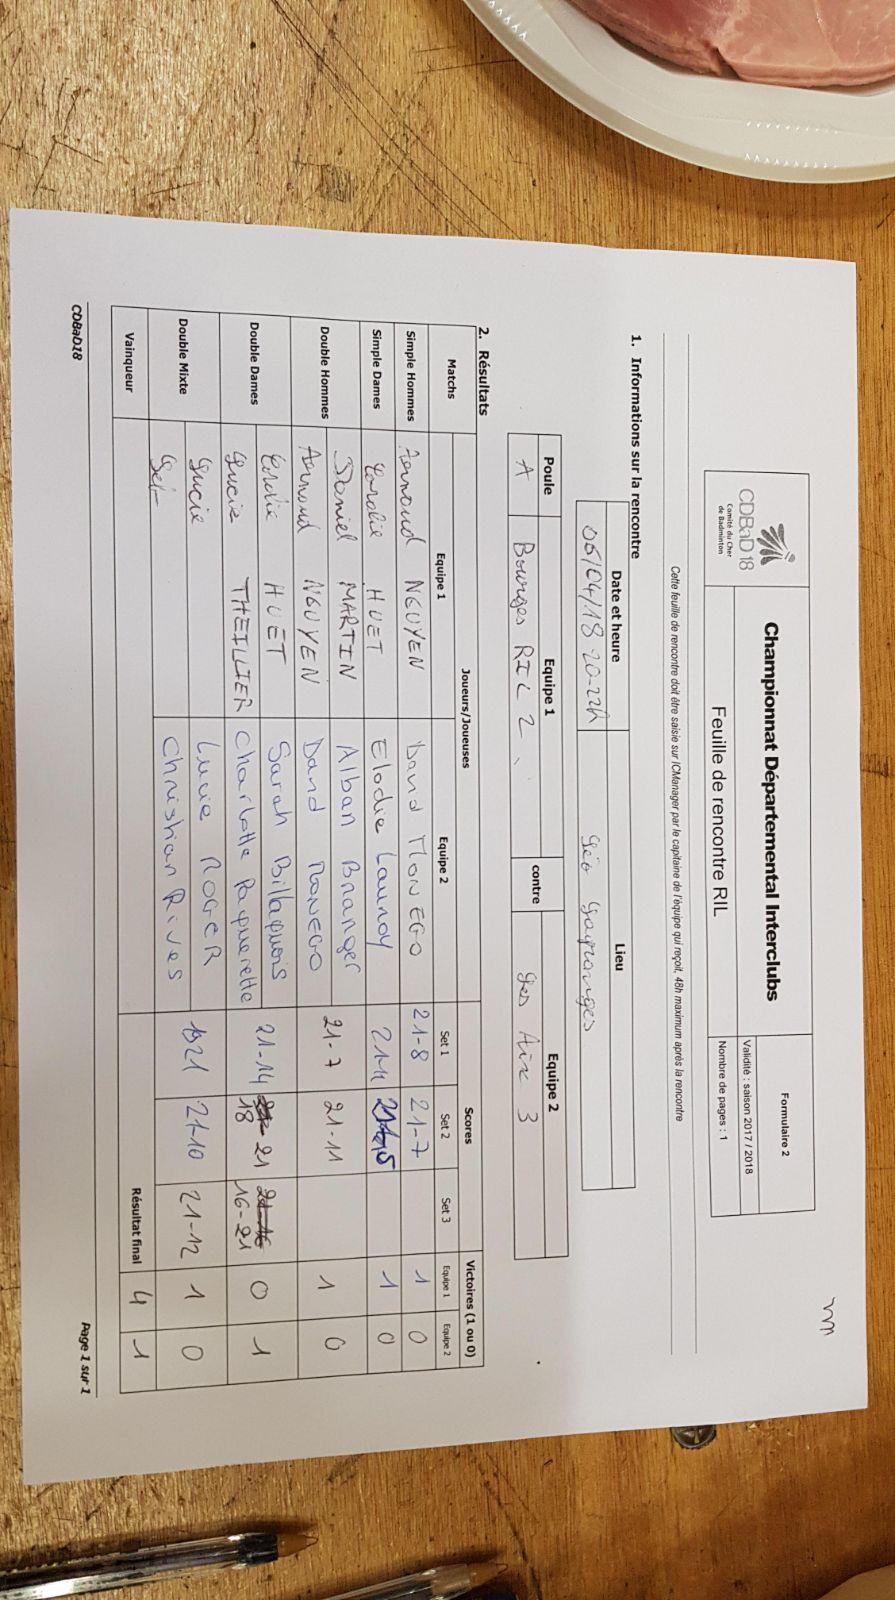 CDBaD18
Comité du Cher
de Badminton
Championnat Départemental Interclubs
Feuille de rencontre RIL
Formulaire 2
Validité : saison 2017 / 2018
Nombre de pages : 1
Cette feuille de rencontre doit être saisie sur ICManager par le capitaine de l'équipe qui reçoit, 48h maximum après la rencontre
1. Informations sur la rencontre
Date et heure Lieu
06/04/18 20-22h
Poule Equipe 1 contre Equipe 2
A Bourges RIL 2 Les Aix 3
2. Résultats
Matchs Joueurs/Joueuses Scores Victoires (1 ou 0)
Equipe 1 Equipe 2 Set 1 Set 2 Set 3 Equipe 1 Equipe 2
Simple Hommes Arnaud NGUYEN David MONEGO 21-8 21-7 1 0
Simple Dames Coralie HUET Elodie Launay 21-11 1 0
Double Hommes Daniel MARTIN Alban Branger 21-7 21-11 1 0
Arnaud NGUYEN David MONEGO
Double Dames Coralie HUET Sarah 21-14 18-21 16-21 0 1
Lucie THEILLIER Charlotte Paquerette
Double Mixte Lucie Lucie ROGER 21-10 21-12 1 0
Christian Rives
Vainqueur Résultat final 4 1
CDBaD18 Page 1 sur 1